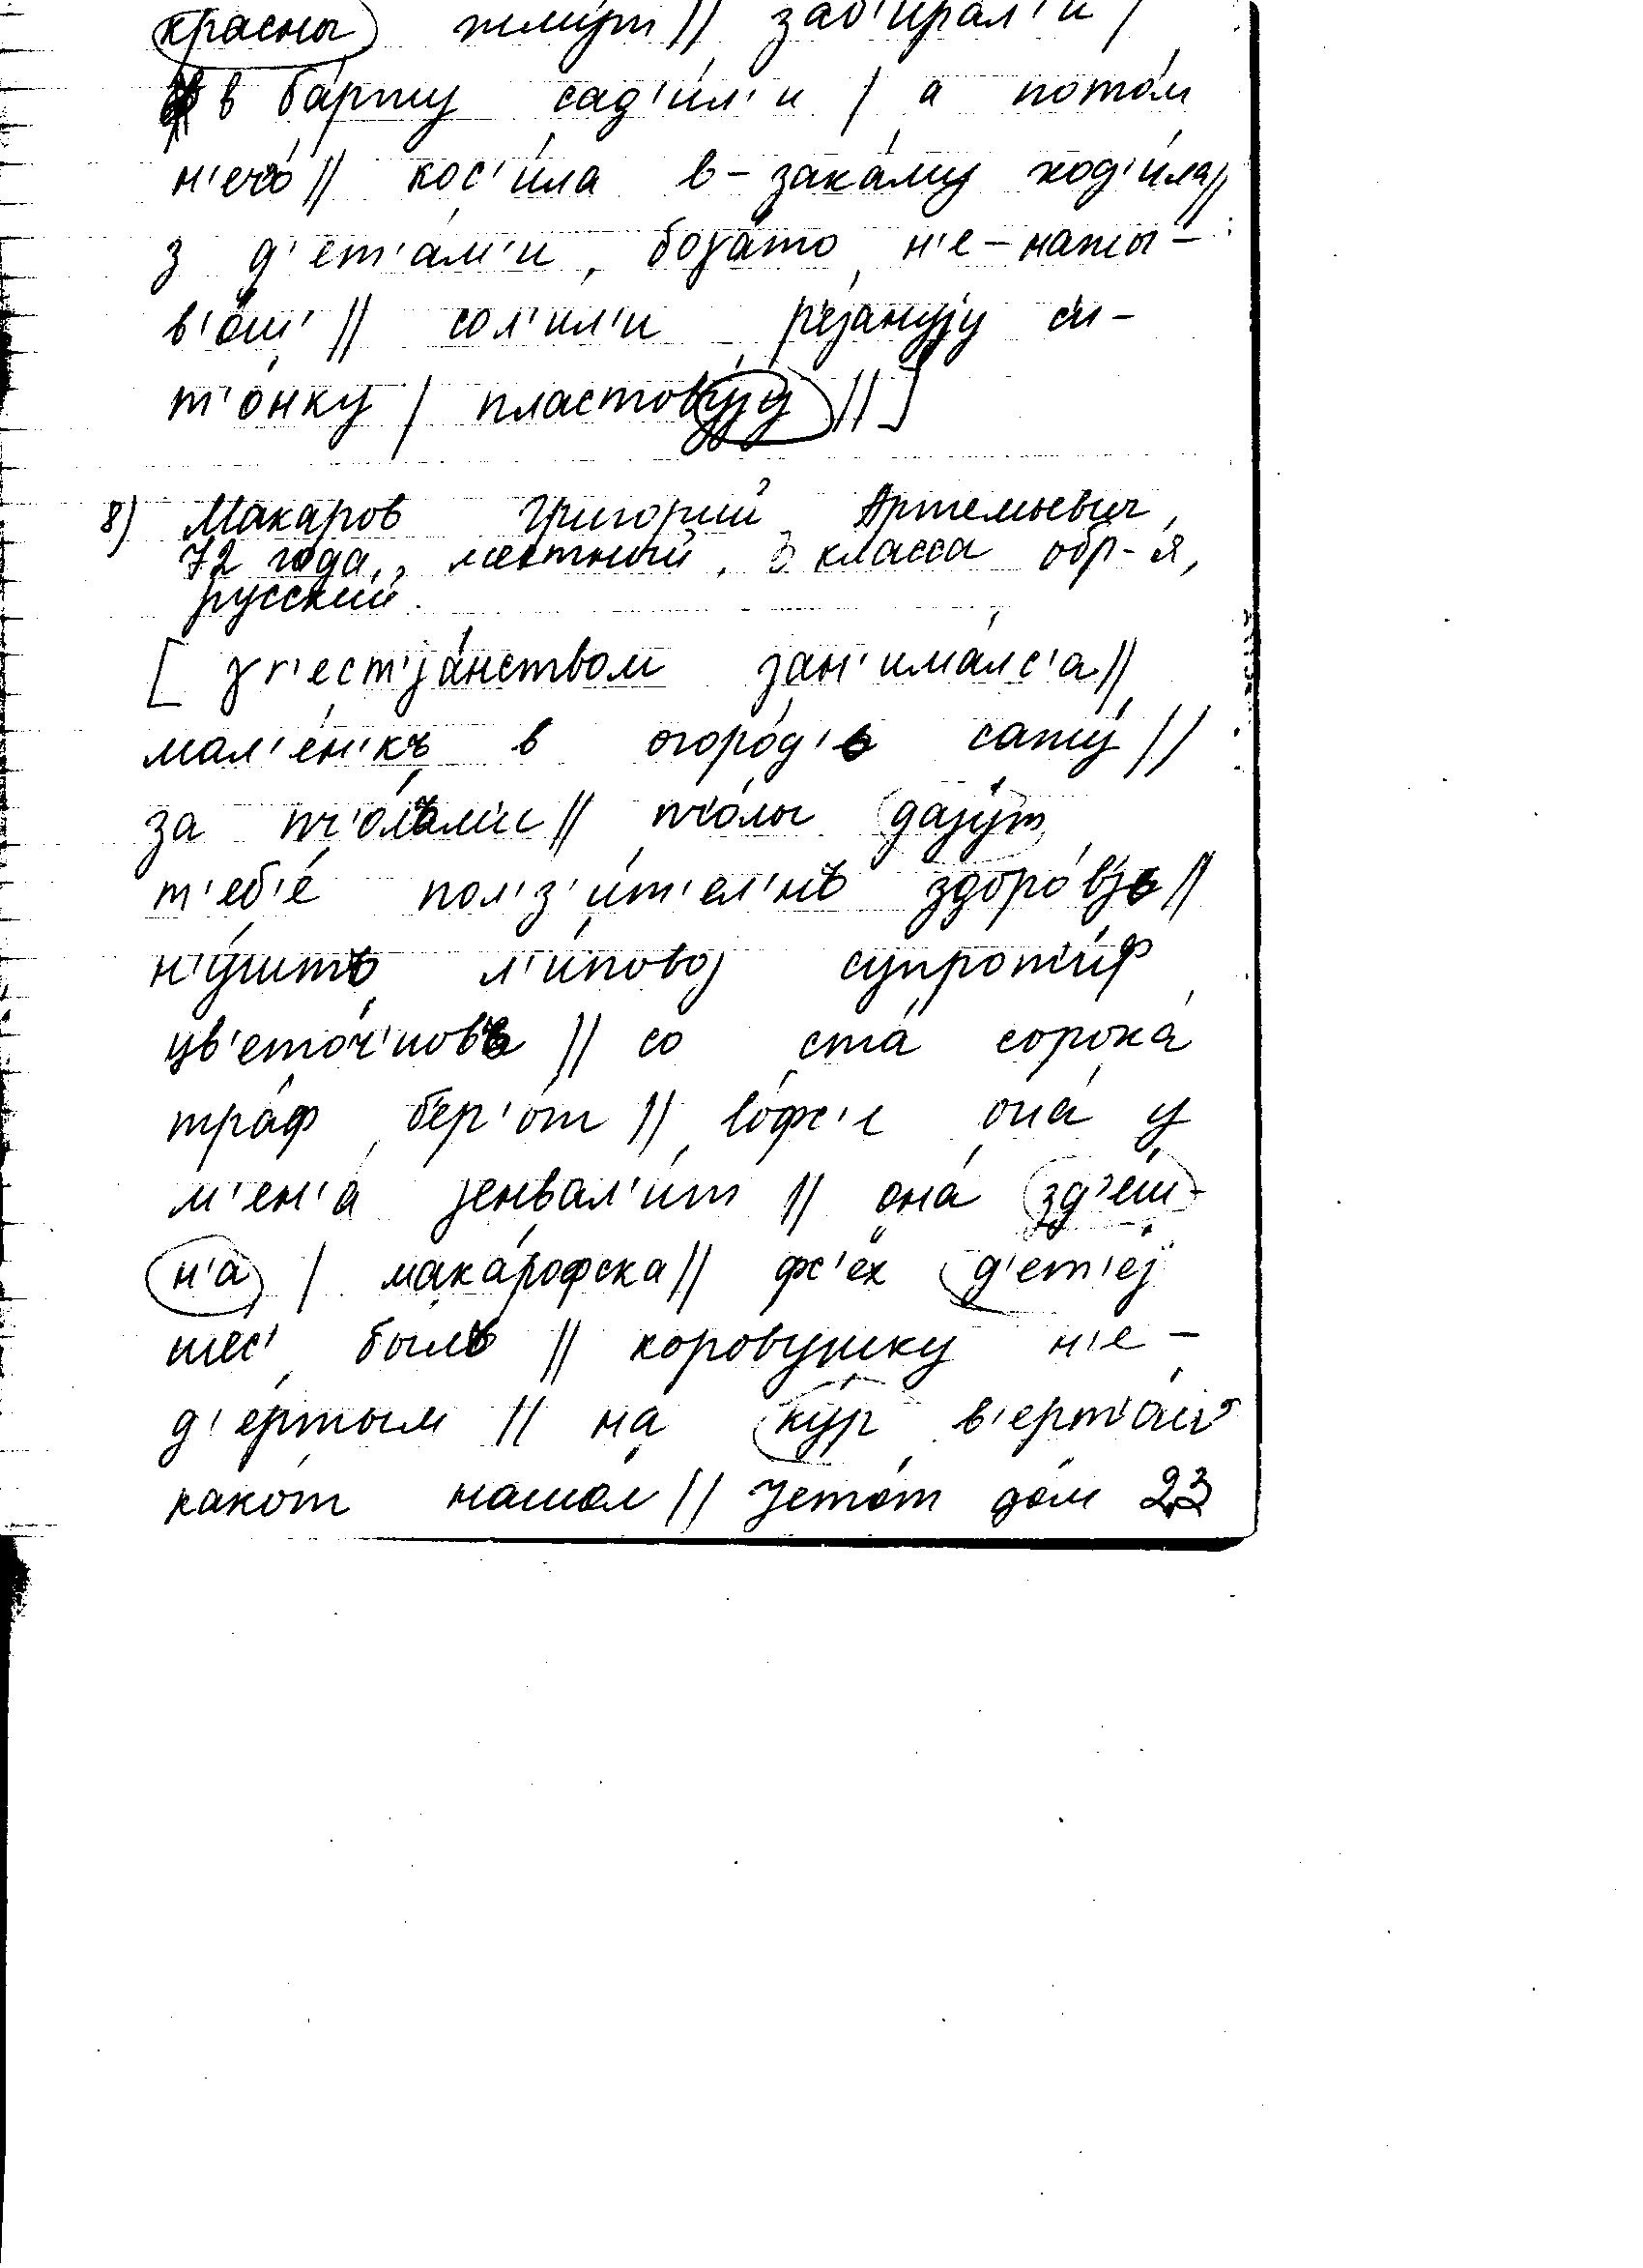 красны жмут || заб'ирал'и /
в ба́ржу сад'и́л'и / а пото́м
н'ечо́ || кос'и́ла в-зака́му ход'и́ла ||
з д'ет'а́м'и, боγа́то н'е-нажы-
в'о́ш' || сол'ил'и р'е́јануjу си-
т'о́нку / пластову́jу || ]
8) Макаров Григорий Артемьевич,
72 года, местный, 3 класса обр-я,
русский.
[ γr'ест'jа́нством зан'има́лс'а ||
мал'е́н'къ в огоро́д'ь сажу́ ||
за пч'о́лъм'и || пчо́лы даjу́т
т'еб'е́ пол'з'и́т'ел'нъ здоро́вjь ||
н'у́шитъ л'и́повоj супрот'и́ф
цв'ето́ч'новъ || со ста́ сорока́
тра́ф б'ер'о́т || во́фс'е она́ у
м'ен'а́ jенвал'и́т || она́ зд'е́ш-
н'а / мака́рофска || фс'ех д'ет'е́j
шес' былъ || коровушку н'е-
д'е́ржым || на ку́р в'ерт'а́ш'
како́т нашо́л || jето́т до́м 23